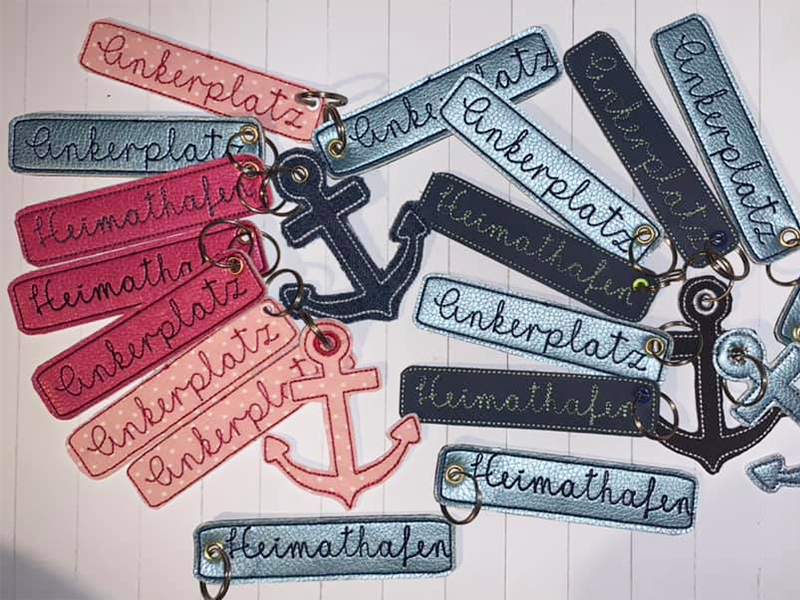 Ankerplatz
Ankerplatz
Ankerplatz
Ankerplatz
Ankerplatz
Ankerplatz
Heimathafen
Heimathafen
Ankerplatz
Ankerplatz
Heimathafen
Ankerplatz
Ankerplatz
Heimathafen
Heimathafen
Heimathafen